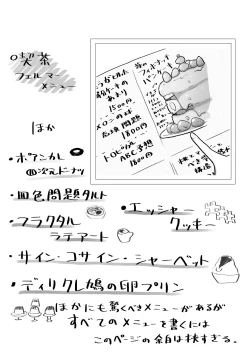 喫茶
フェルマー
メニュー
ほか
・ポアンカレ
四次元ドーナツ
・四色問題タルト
・エッシャー
クッキー
・フラクタル
ラテアート
・サイン・コサイン・シャーベット
・ディリクレ鳩の卵プリン
ほかにも驚くべきメニューがあるが
すべてのメニューを書くには
このページの余白は狭すぎる。
1500円
メロンの
応用問題
1800円
トロピカル
ABC予想
1800円